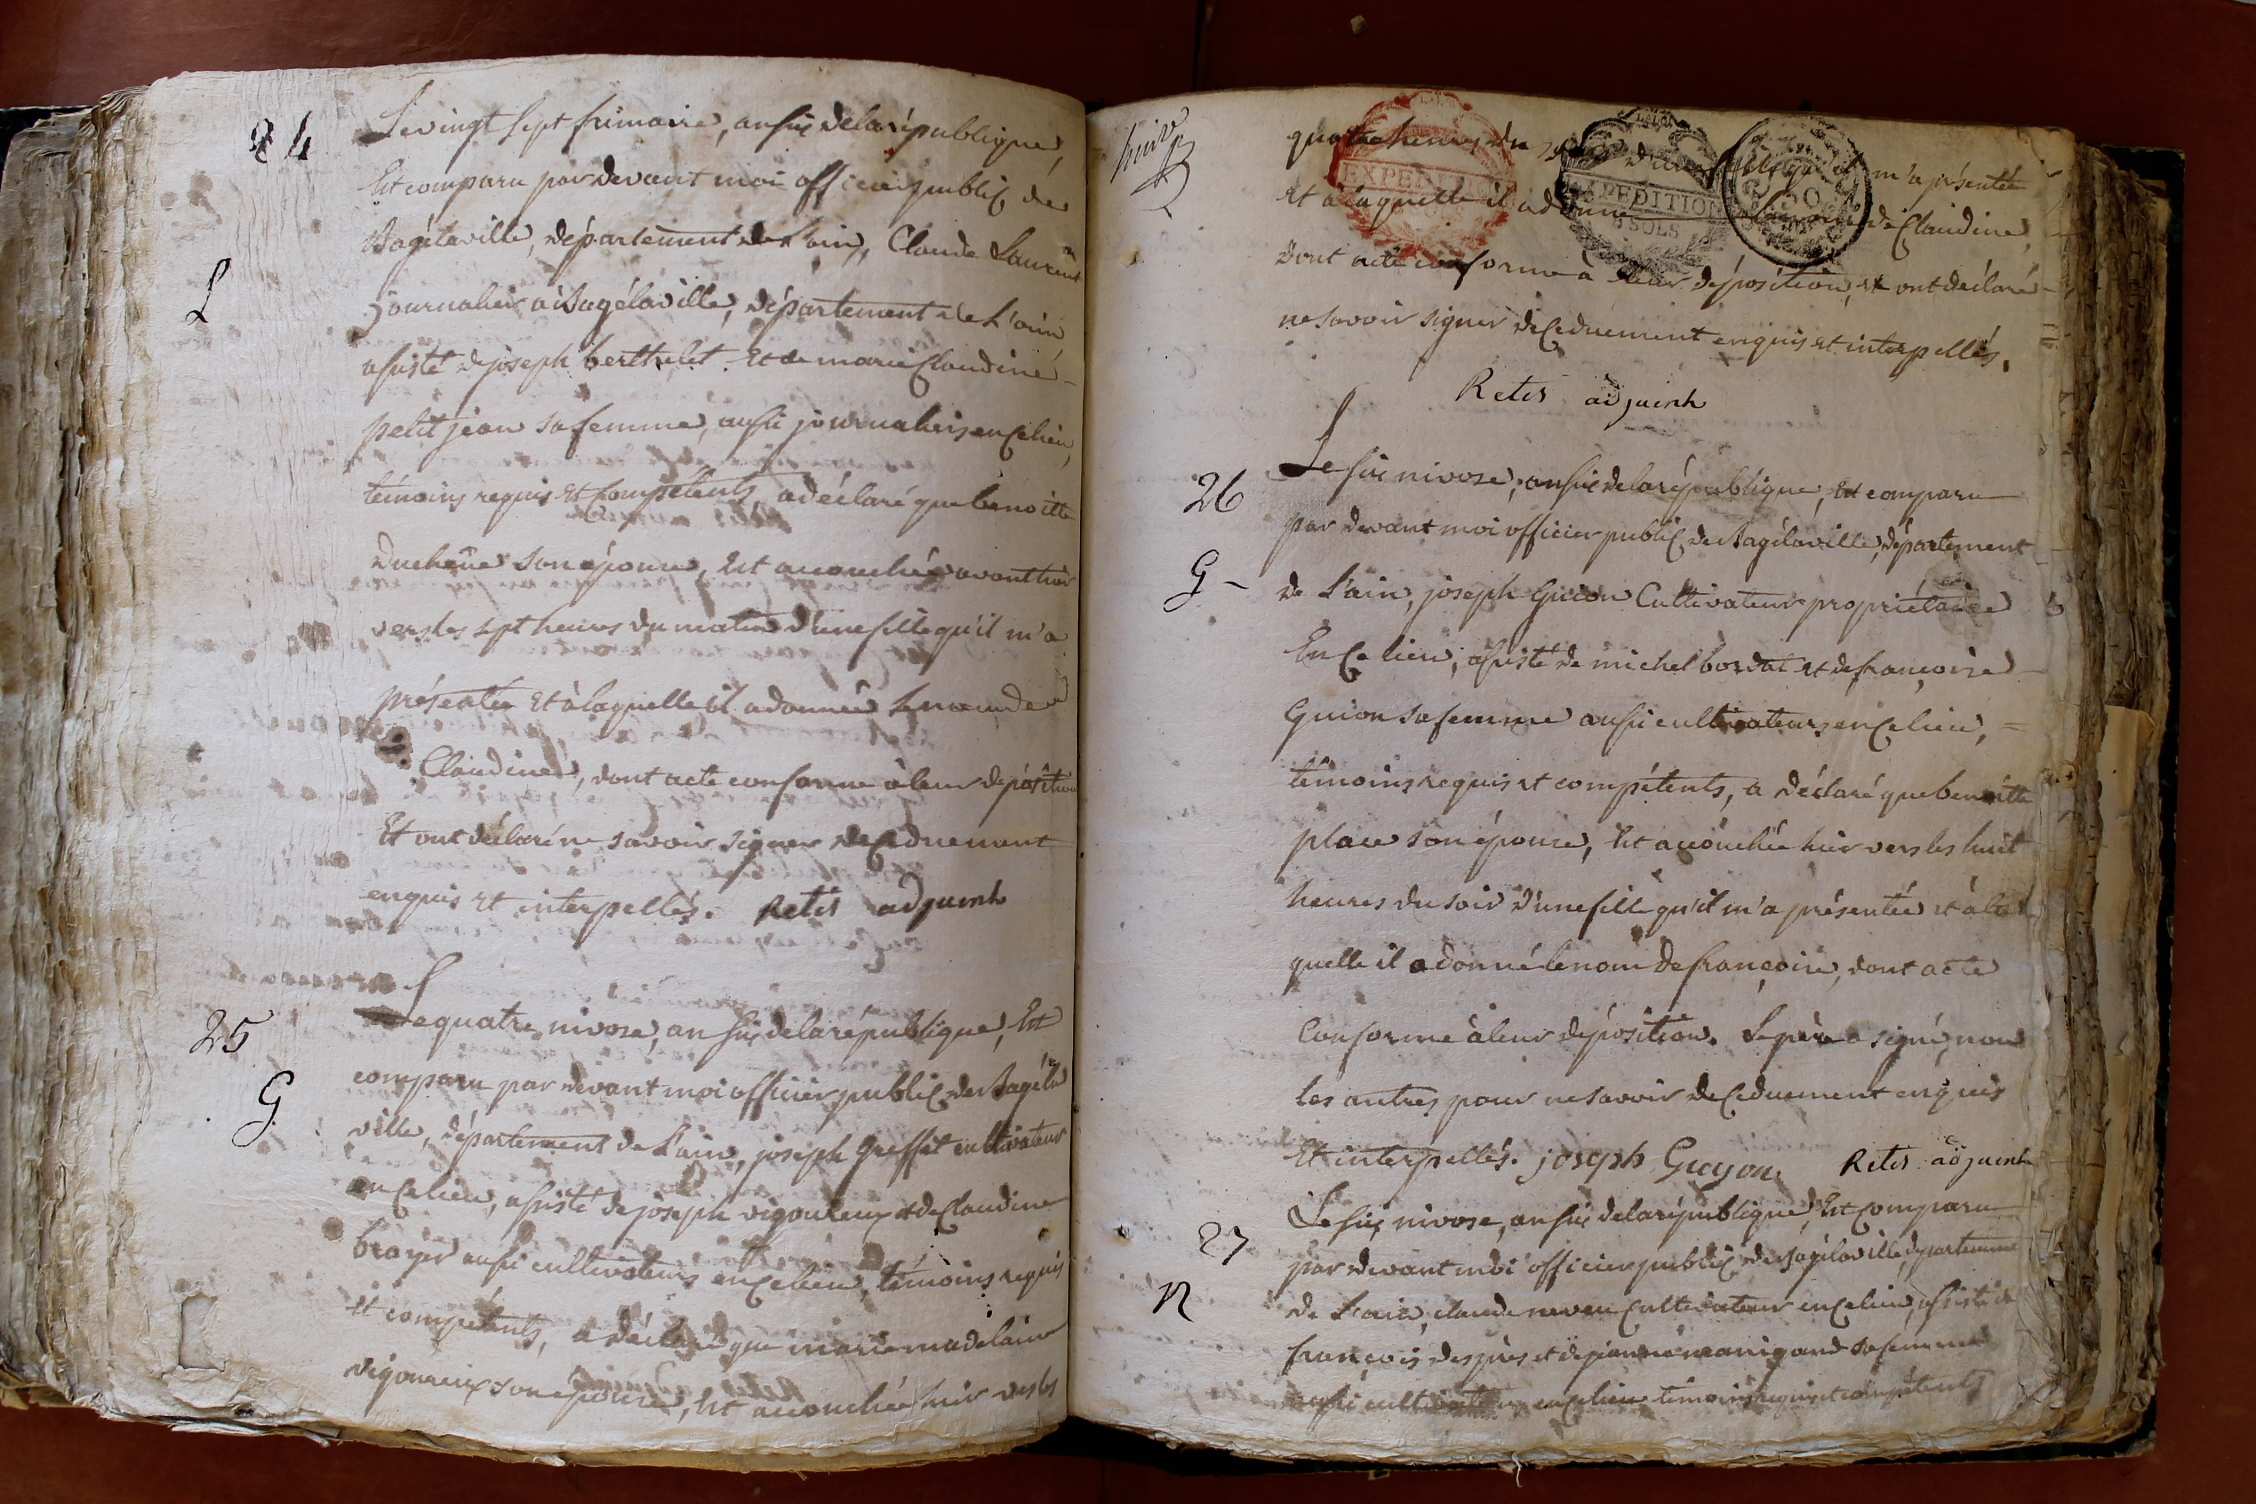 24
Le vingt sept frimaire, an six de la république,
Est comparu par devant moi officier public de
Bagélaville, département de l'ain, Claude Laurent
L
journalier à Bagélaville, département de L'ain
assisté de joseph berthelet et de marie Claudine
petitjean sa femme, aussi journaliers en ce lieu,
témoins requis et compétents, a déclaré que benoitte
Duchêne son épouse, Est accouchée avant hier
vers les sept heures du matin d'une fille qu'il m'a
présentée Et à laquelle il a donnée le nom de
Claudine, dont acte conforme à leur déposition
Et ont déclaré ne savoir signer de ce duement
enquis et interpellés. Retis adjuint
25
Le quatre nivose, an six de la république, Est
comparu par devant moi officier public de Bagéla
G
ville, département de L'ain, joseph Greffet cultivateur
en ce lieu, assisté de joseph vigoureux et de Claudine
broyer aussi cultivateurs en ce lieu, témoins requis
et compétents, a déclaré que marie madelaine
vigoureux son épouse, Est accouchée hier vers les
quatre heures du d'une m'a présentée
Et à laquelle il a donné de Claudine,
Dont acte conforme à leur déposition, et ont déclaré
ne savoir signer de ce duement enquis et interpellés.
EXPEDITION
EXPEDITION
5 SOLS
50
Retis adjuint
26
Le six nivose, an six de la république, Est comparu
par devant moi officier public de Bagélaville, département
G
de L'ain, joseph Guion Cultivateur propriétaire
En ce lieu, assisté de michel bordat et de françoise
Guion sa femme aussi cultivateurs en ce lieu,
témoins requis et compétents, a déclaré que benoitte
place son épouse, Est accouchée hier vers les huit
heures du soir d'une fille qu'il m'a présentée et à la
quelle il a donné le nom de françoise, dont acte
Conforme à leur déposition. Le père a signé, non
les autres pour ne savoir de ce duement enquis
Et interpellés. joseph Guyon Retis adjuint
27
Le six nivose, an six de la république, Est comparu
par devant moi officier public de Bagélaville, département
N
de L'ain, claude neveu Cultivateur en ce lieu, assisté de
françois desprès et de jeanne manigand sa femme
aussi cultivateurs en ce lieu témoins requis et compétents